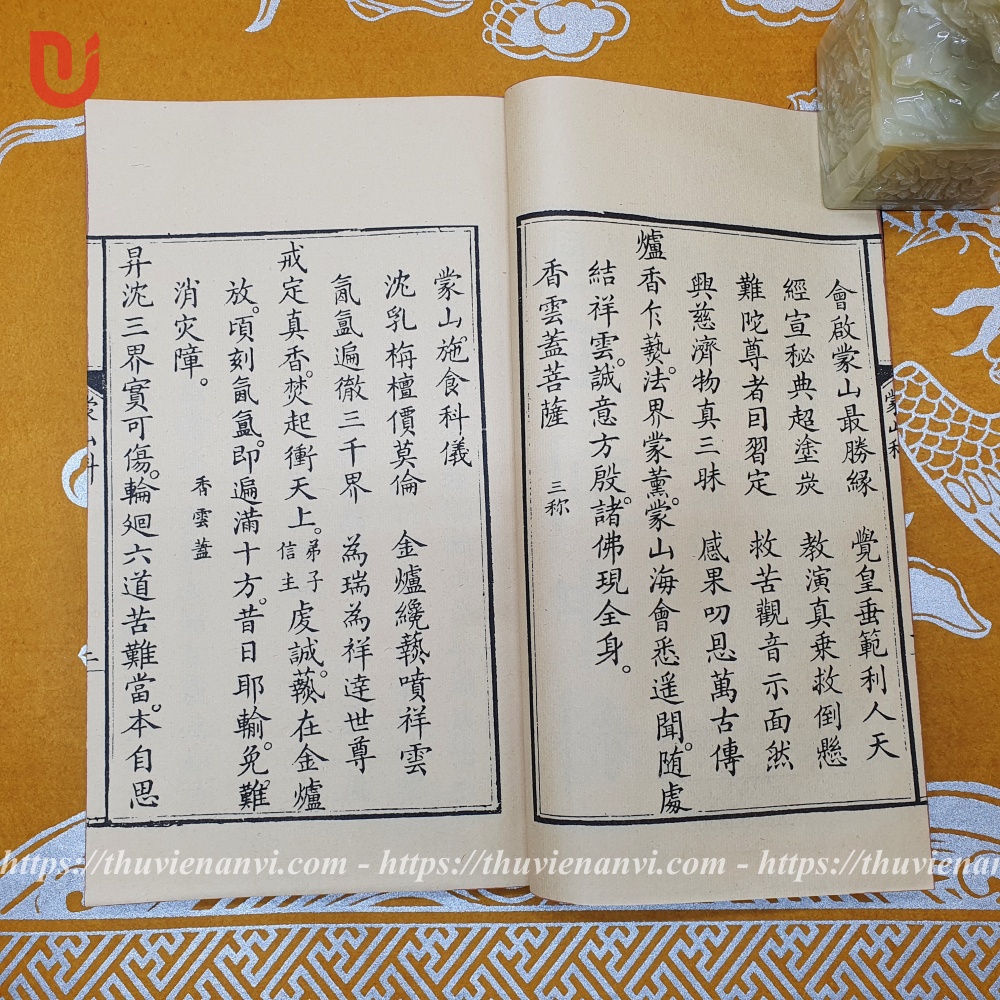 會啟蒙山最勝緣 覺皇垂範利人天
經宣秘典超塗炭 教演真乗救倒懸
難陀尊者囙習定 救苦觀音示面然
興慈濟物真三昧 感果叨恩萬古傳
爐香乍爇。法界蒙薰。蒙山海會悉遥聞。随處
結祥雲。誠意方殷。諸佛現全身。
香雲蓋菩薩 三称
蒙山施食科儀
沈乳栴檀價莫倫。 金爐纔爇噴祥雲
氤氳遍徹三千界 為瑞為祥達世尊
戒定真香。焚起衝天上。弟子信主虔誠。爇在金爐
放。頃刻氤氳。即遍滿十方。昔日耶輸。免難。
消灾障。 香雲蓋
昇沈三界實可傷。輪廻六道苦難當。本自思
蒙山科
二
https://thuvienanvi.com - https://thuvienanvi.com - https://thuvienanvi